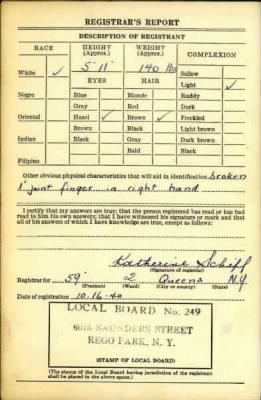 REGISTRAR'S REPORT
DESCRIPTION OF REGISTRANT
RACE HEIGHT (Approx.) WEIGHT (Approx.) COMPLEXION
White ✓ 5' 11" 140 lbs Sallow
EYES HAIR Light ✓
Negro Blue Blonde Ruddy
Gray Red Dark
Oriental Hazel ✓ Brown ✓ Freckled
Brown Black Light brown
Indian Black Gray Dark brown
Bald Black
Filipino
Other obvious physical characteristics that will aid in identification broken
1" joint finger in right hand
I certify that my answers are true; that the person registered has read or has had
read to him his own answers; that I have witnessed his signature or mark and that
all of his answers of which I have knowledge are true, except as follows:
Katherine Schiff
(Signature of registrar)
Registrar for 59 2 Queens N.Y.
(Precinct) (Ward) (City or county) (State)
Date of registration 10-16-40
LOCAL BOARD No. 249
SAUNDERS STREET
REGO PARK, N. Y.
(STAMP OF LOCAL BOARD)
(The stamp of the Local Board having jurisdiction of the registrant
shall be placed in the above space.)